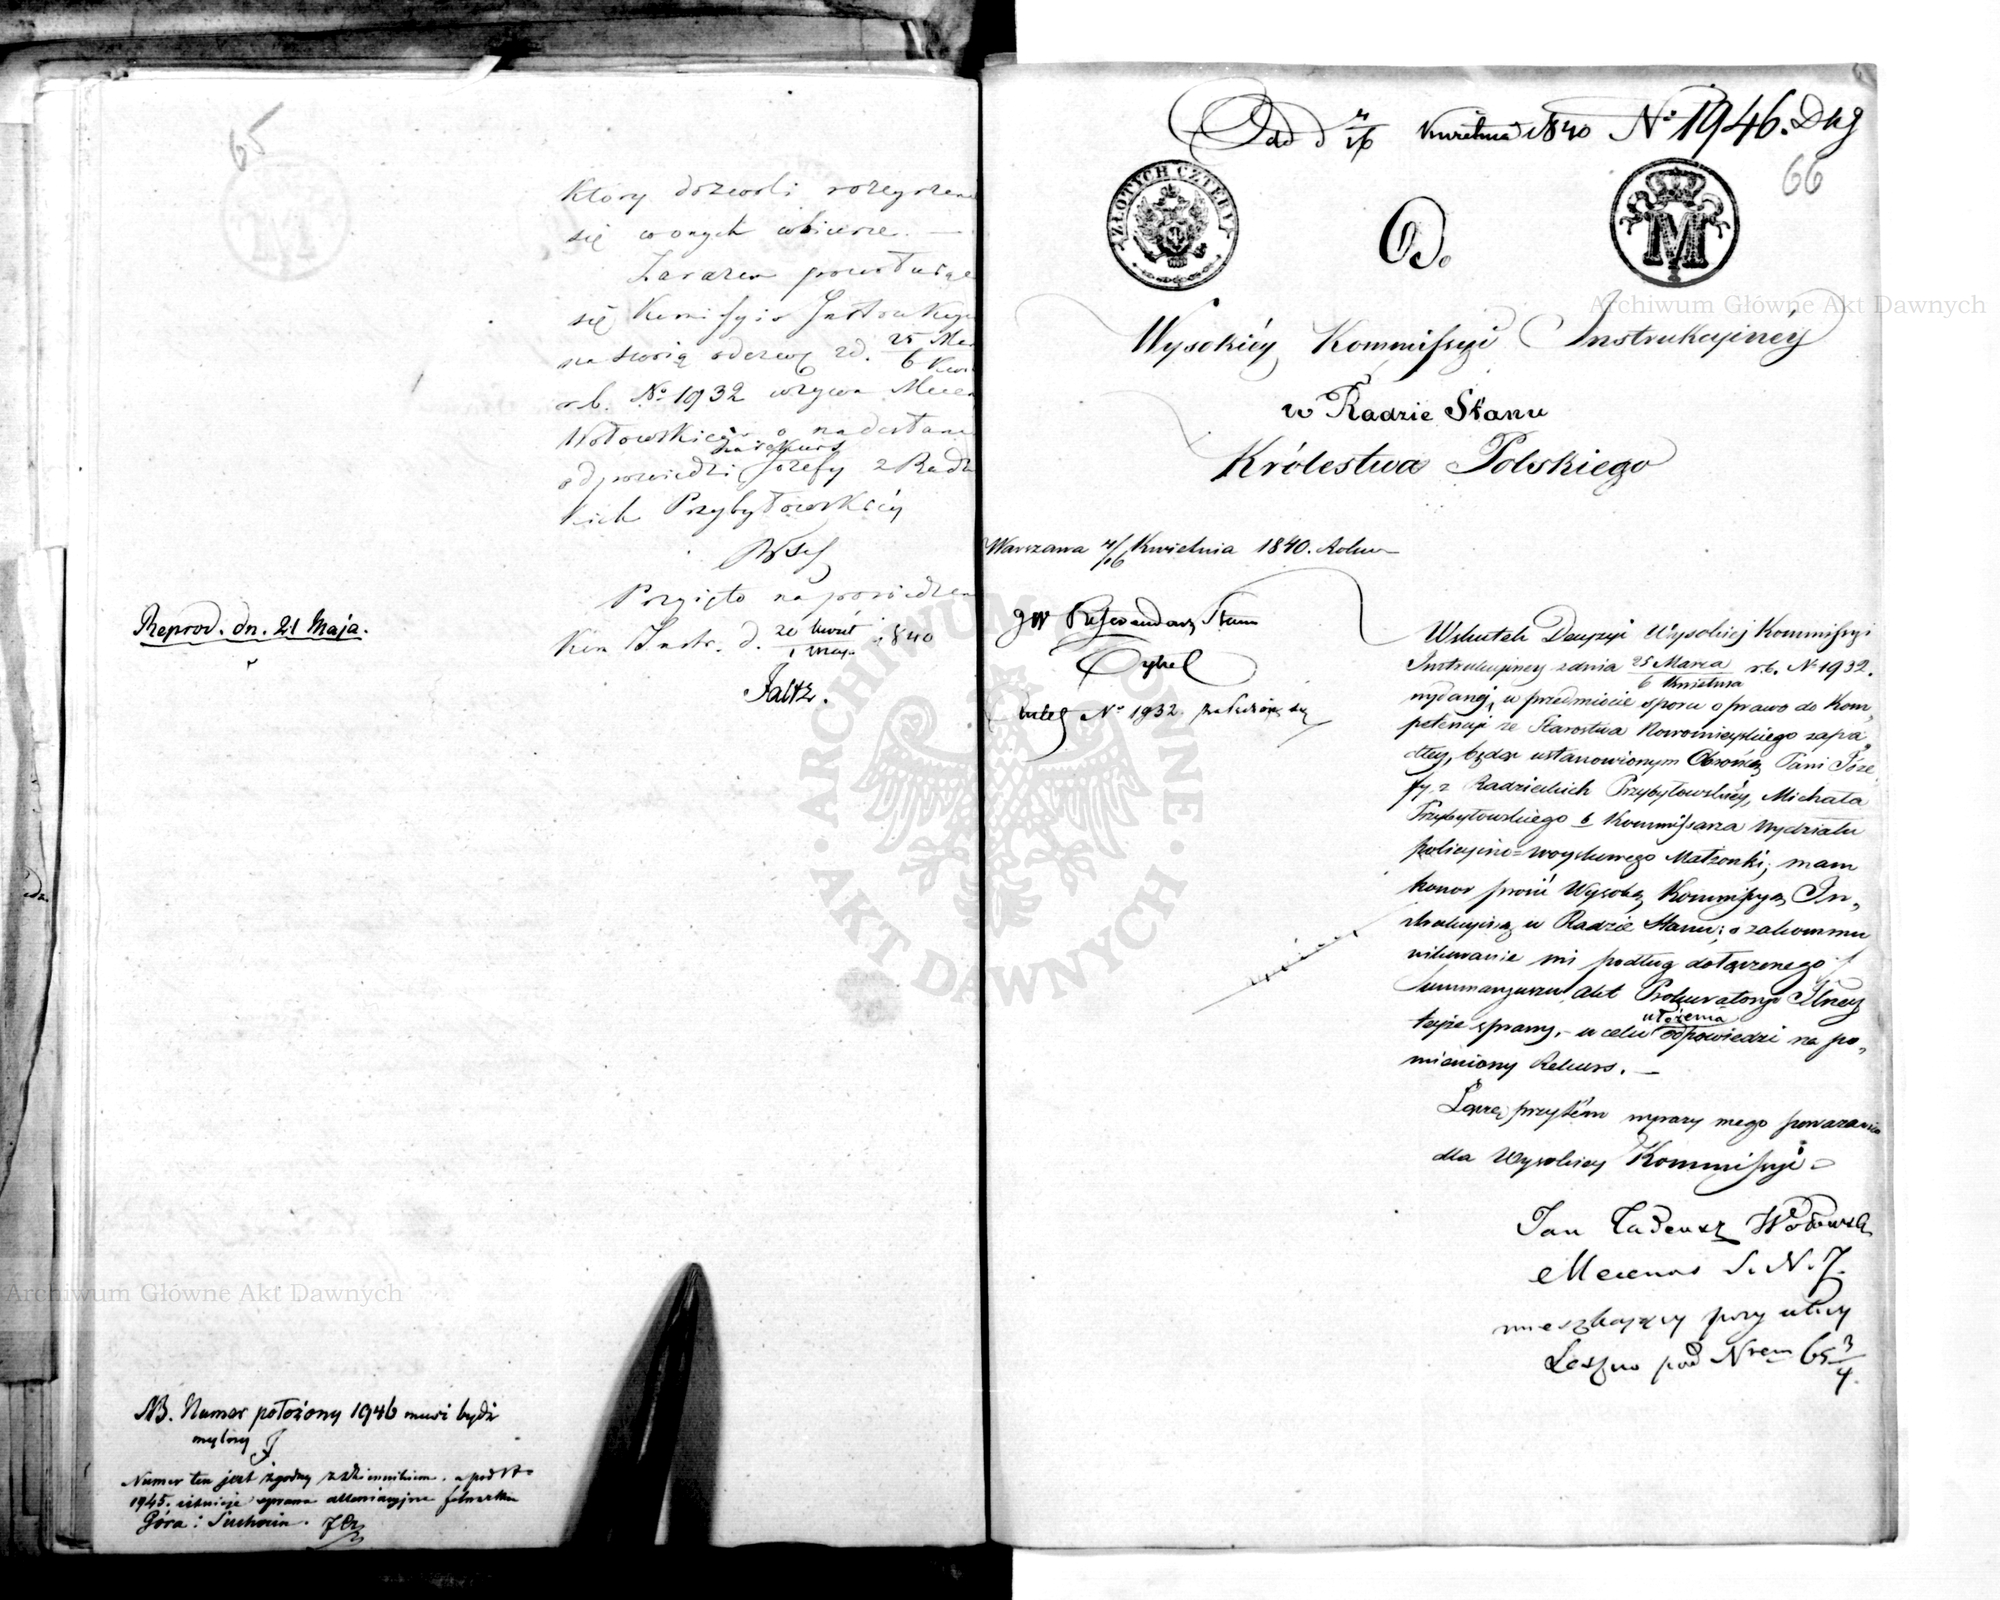 65
Który dozwoli rozeyrzenia
się w onych w biurze. —
Zarazem powołując
się Kommissyia Instrukcyi
na swoią odezwę z d. 25 Mar / 6 Kwie
r. b. No 1932 wzywa Mece
Wołowskiego o nadesłanie
na rekurs
odpowiedzi Józefy z Radz
kich Przybyłowskiéy
Przyięto na posiedzeniu
Kom Instr. d. 20 Kwiet / 1 Maja 1840
Reprod. dn. 21 Maja.
NB. Numer położony 1946 musi bydź
mylny
Numer ten jest zgodny z dziennikiem. a pod No
1945. istnieje sprawa folwarku
Góra: Suchocin.
Dnia 4/16 Kwietnia 1840 No 1946. Dkg
66
ZŁOTYCH CZTERY
M
Do
Wysokiéy Kommissyi Instrukcyinéy
w Radzie Stanu
Królestwa Polskiego
Warszawa 4/16 Kwietnia 1840. Roku
JW Referendarz Stanu
No 1932.
Wskutek Decyzyi Wysokiej Kommissyi
Instrukcyiney z dnia 25 Marca / 6 Kwietnia r. b. No 1932.
wydanej, w przedmiocie sporu o prawo do Kom„
petencyi ze Starostwa Nowomieyskiego zapa„
dłey, będąc ustanowionym Obrońcą Pani Józe„
fy z Radzickich Przybyłowskiéy, Michała
Przybyłowskiego b. Kommissarza Wydziału
policyino=woyskowego Małżonki; mam
honor prosić Wysoką Kommissyą In„
strukcyiną w Radzie Stanu; o zakommu
nikowanie mi podług dołączonego
Summaryuszu Akt Prokuratoryi
teyże sprawy, – w celu ułożenia odpowiedzi na po„
mieniony Rekurs. —
Łączę przytém wyrazy mego poważania
dla Wysokiey Kommissyi –
Jan Tadeusz Wołowski
Mecenas S. N. J.
mieszkający przy ulicy
Leszno pod Nrem 65 3/4.
Archiwum Główne Akt Dawnych
Archiwum Główne Akt Dawnych
ARCHIWUM GŁÓWNE AKT DAWNYCH